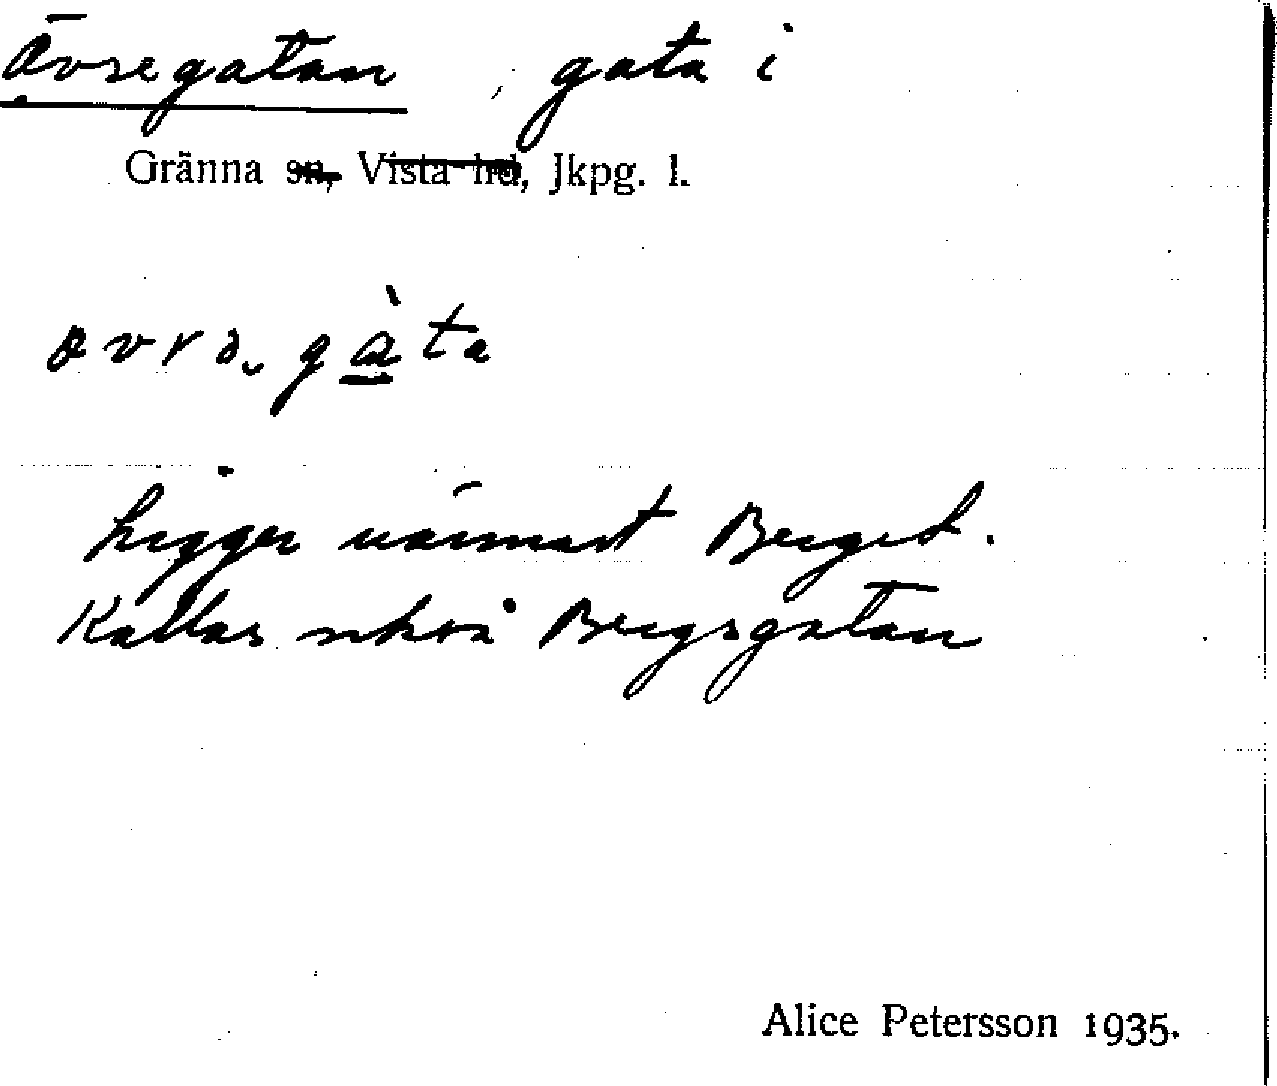 Övregatan, gata i
Gränna sn, Vista hrd, Jkpg. l.
ligger närmast Berget.
Kallas också Bergsgatan
Alice Petersson 1935.